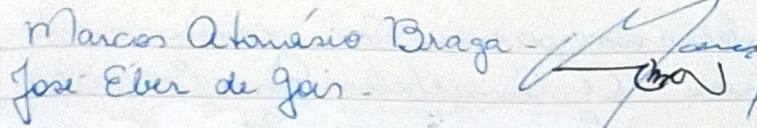 Marcos Atanásio Braga -
José Eber de Gois -